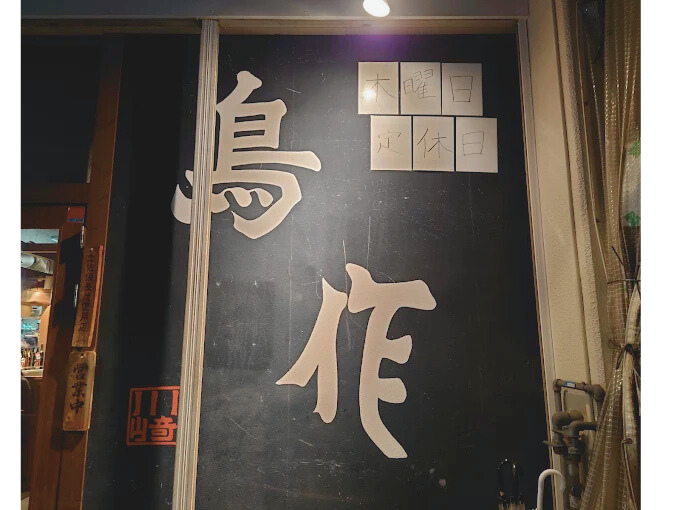 鳥作
木曜日
定休日
営業中
川崎